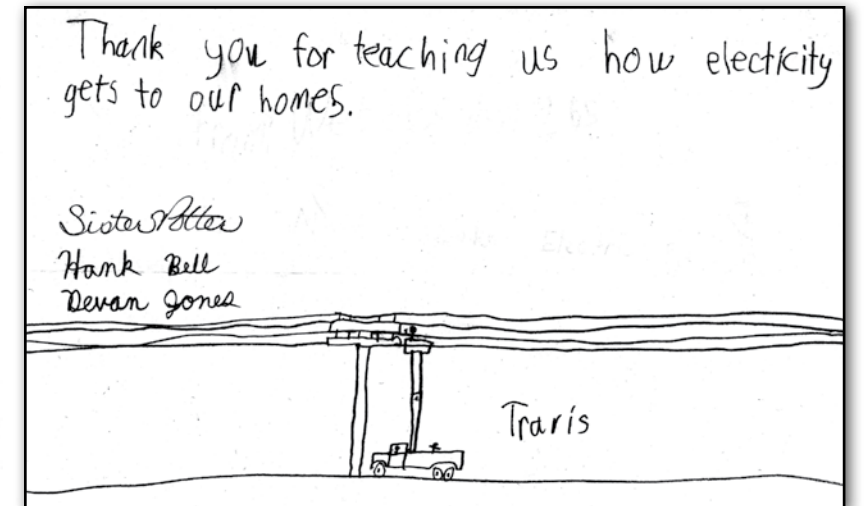 Thank you for teaching us how electricity
gets to our homes.
Sister Potter
Hank Bell
Devan Jones
Travis